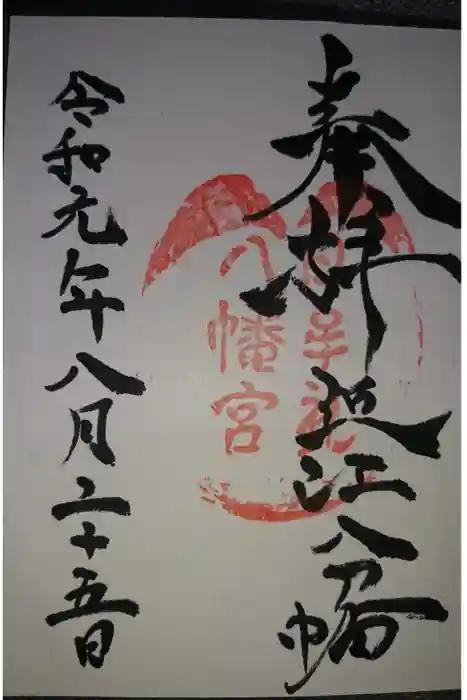 奉拝
近江八幡
日牟禮
八幡宮
令和元年八月二十五日